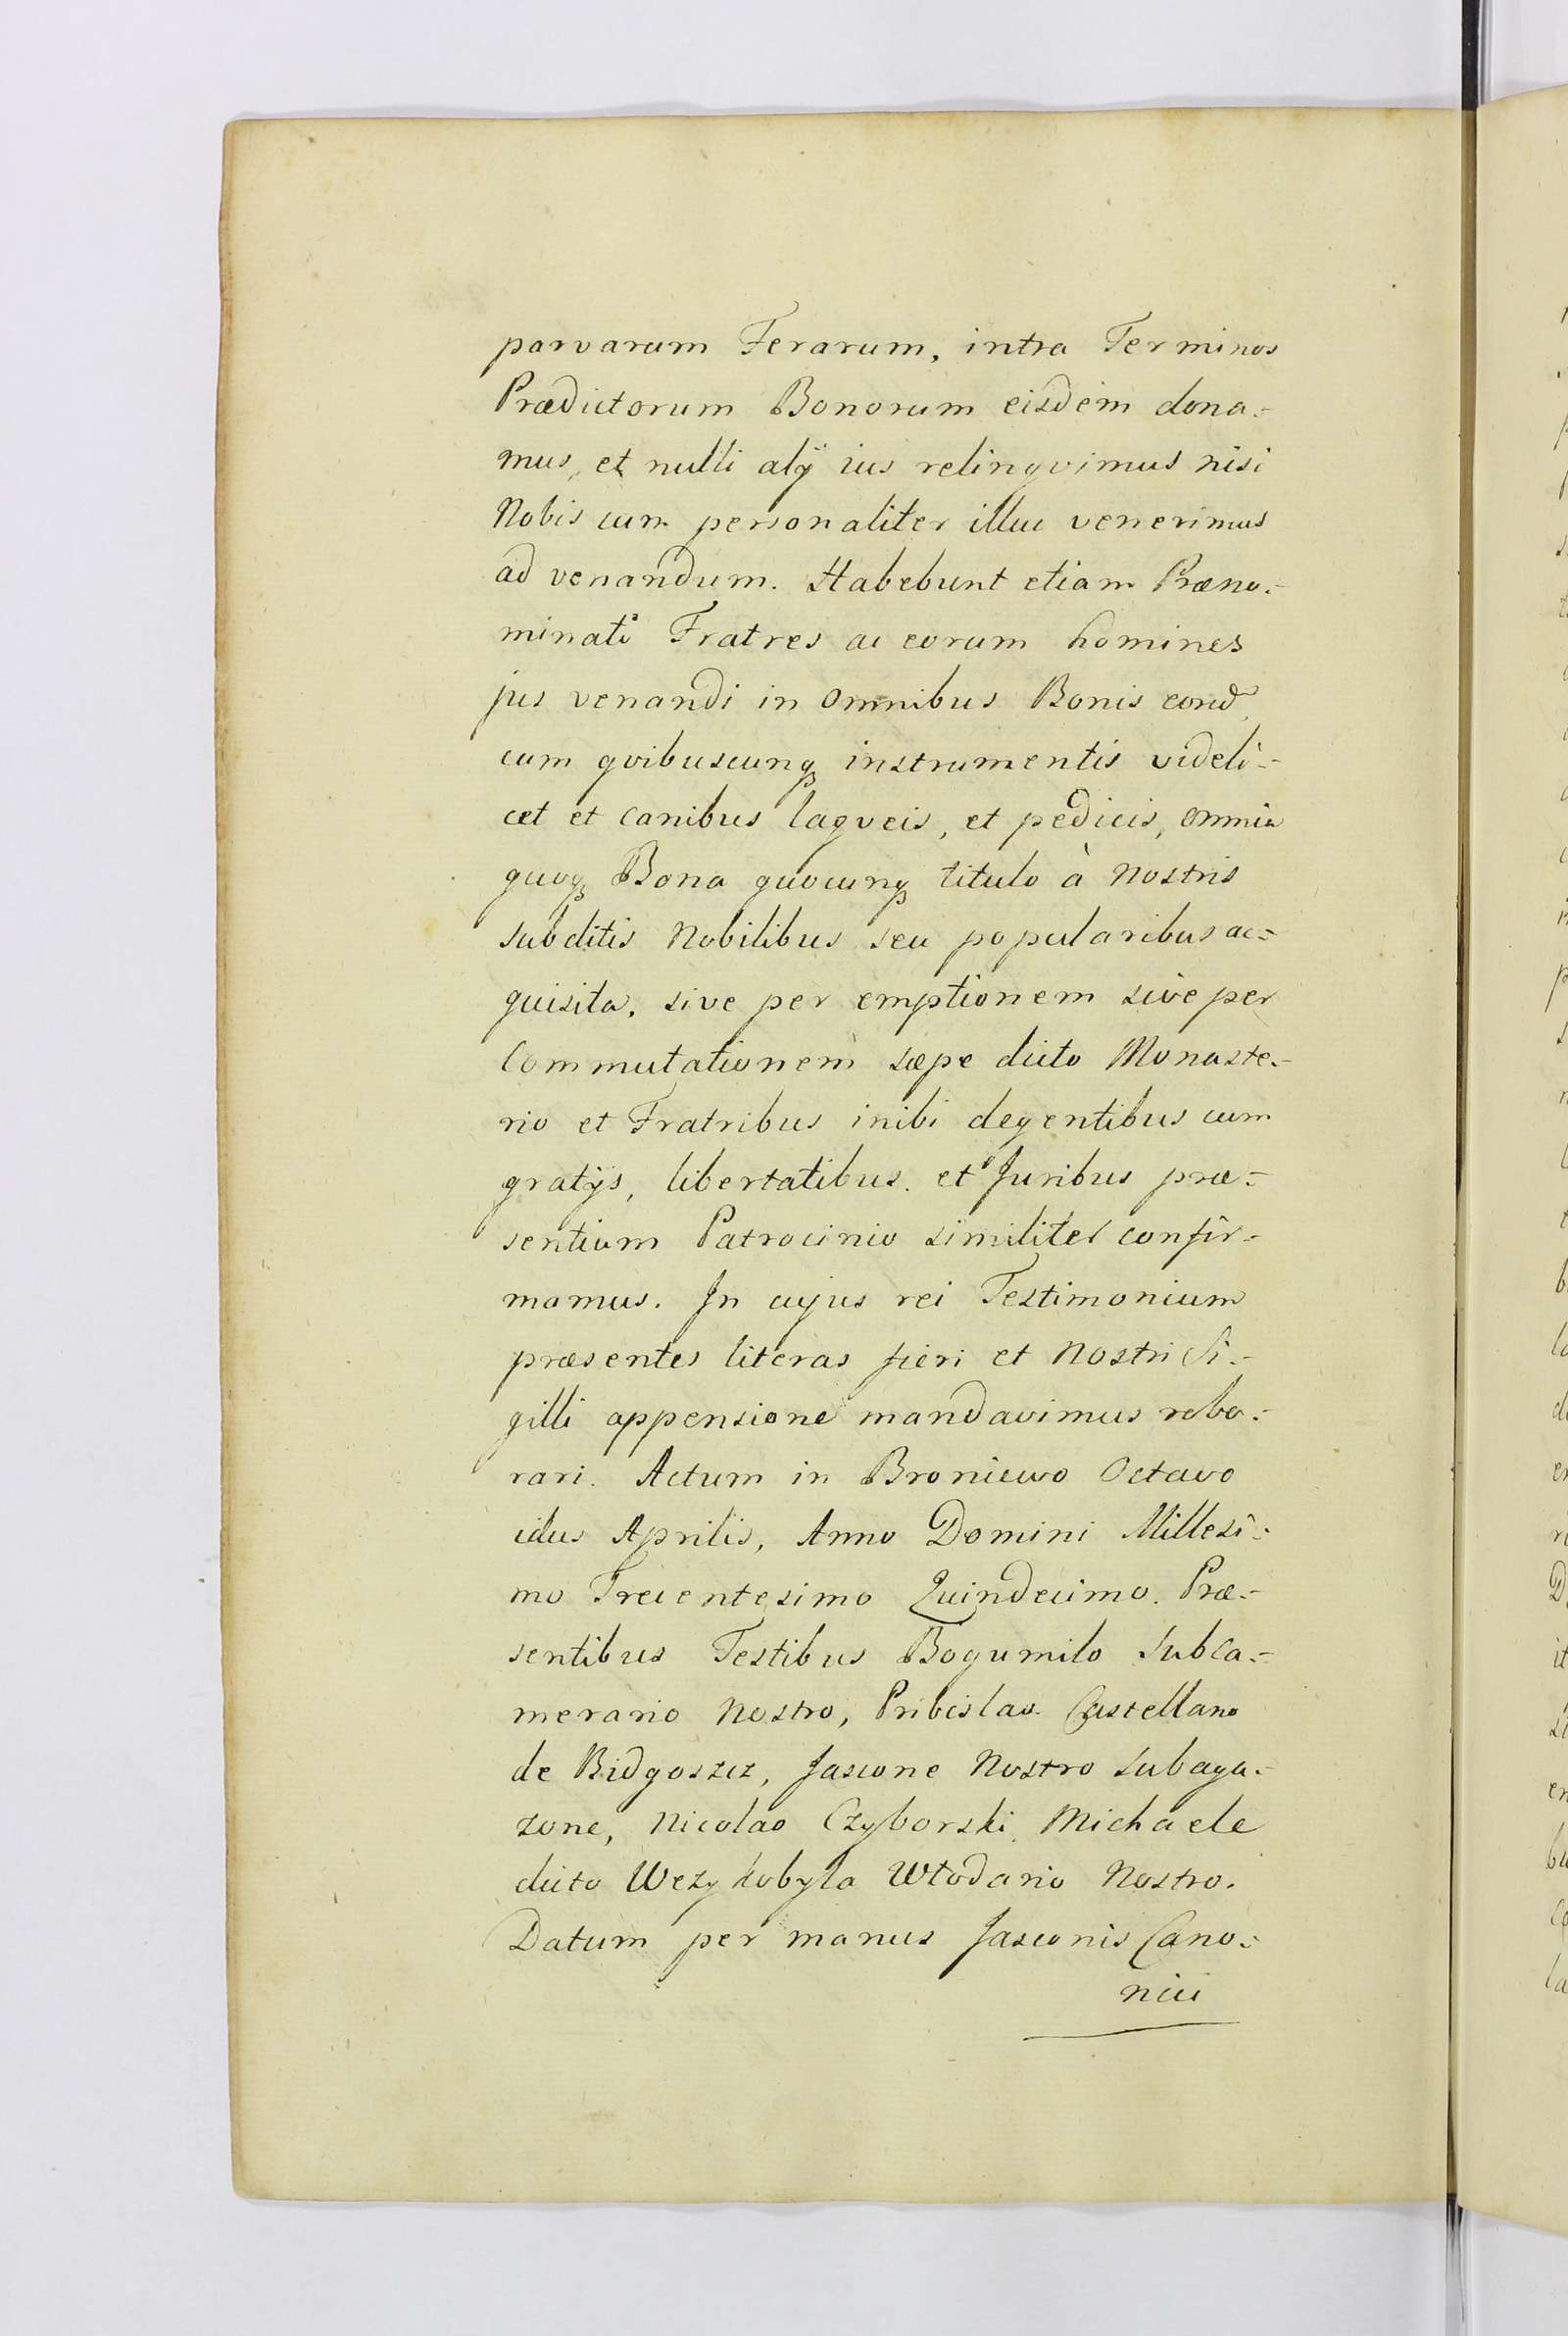 parvarum Ferarum, intra Terminos
Prædictorum Bonorum eisdem dona=
mus, et nulli alÿ ius relinqvimus nisi
Nobis cum personaliter illuc venerimus
ad venandum. Habebunt etiam Præno=
minati Fratres ac eorum homines
jus venandi in omnibus Bonis eorud
cum qvibuscunq instrumentis videli=
cet et canibus laqveis, et pedicis, omnia
quoq Bona quocunq titulo à nostris
subditis Nobilibus seu popularibus ac=
quisita, sive per emptionem sive per
Commutationem sæpe dicto Monaste=
rio et Fratribus inibi degentibus cum
gratÿs, libertatibus. et Juribus præ=
sentium Patrocinio similiter confir=
mamus. In cujus rei Testimonium
præsentes literas fieri et Nostri Si=
gilli appensione mandavimus robo=
rari. Actum in Broniewo Octavo
idus Aprilis, Anno Domini Millesi=
mo Trecentesimo Quindecimo. Præ=
sentibus Testibus Bogumilo Subca=
merario Nostro, Pribislao Castellano
de Bidgoszcz, Jascone Nostro Subaga=
zone, Nicolao Czyborski, Michaele
dicto Wezykobyla Włodario Nostro.
Datum per manus Jasconis Cano=
nici